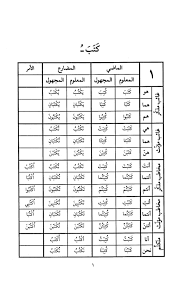 كَتَبَ ـُ
١ الماضي المضارع الأمر
المعلوم المجهول المعلوم المجهول
غائب مذكر
هُوَ كَتَبَ كُتِبَ يَكْتُبُ يُكْتَبُ
هُمَا كَتَبَا كُتِبَا يَكْتُبَانِ يُكْتَبَانِ
هُمْ كَتَبُوا كُتِبُوا يَكْتُبُونَ يُكْتَبُونَ
غائب مؤنث
هِيَ كَتَبَتْ كُتِبَتْ تَكْتُبُ تُكْتَبُ
هُمَا كَتَبَتَا كُتِبَتَا تَكْتُبَانِ تُكْتَبَانِ
هُنَّ كَتَبْنَ كُتِبْنَ يَكْتُبْنَ يُكْتَبْنَ
مخاطب مذكر
أَنْتَ كَتَبْتَ كُتِبْتَ تَكْتُبُ تُكْتَبُ اُكْتُبْ
أَنْتُمَا كَتَبْتُمَا كُتِبْتُمَا تَكْتُبَانِ تُكْتَبَانِ اُكْتُبَا
أَنْتُمْ كَتَبْتُمْ كُتِبْتُمْ تَكْتُبُونَ تُكْتَبُونَ اُكْتُبُوا
مخاطب مؤنث
أَنْتِ كَتَبْتِ كُتِبْتِ تَكْتُبِينَ تُكْتَبِينَ اُكْتُبِي
أَنْتُمَا كَتَبْتُمَا كُتِبْتُمَا تَكْتُبَانِ تُكْتَبَانِ اُكْتُبَا
أَنْتُنَّ كَتَبْتُنَّ كُتِبْتُنَّ تَكْتُبْنَ تُكْتَبْنَ اُكْتُبْنَ
متكلم
أَنَا كَتَبْتُ كُتِبْتُ أَكْتُبُ أُكْتَبُ
نَحْنُ كَتَبْنَا كُتِبْنَا نَكْتُبُ نُكْتَبُ
١